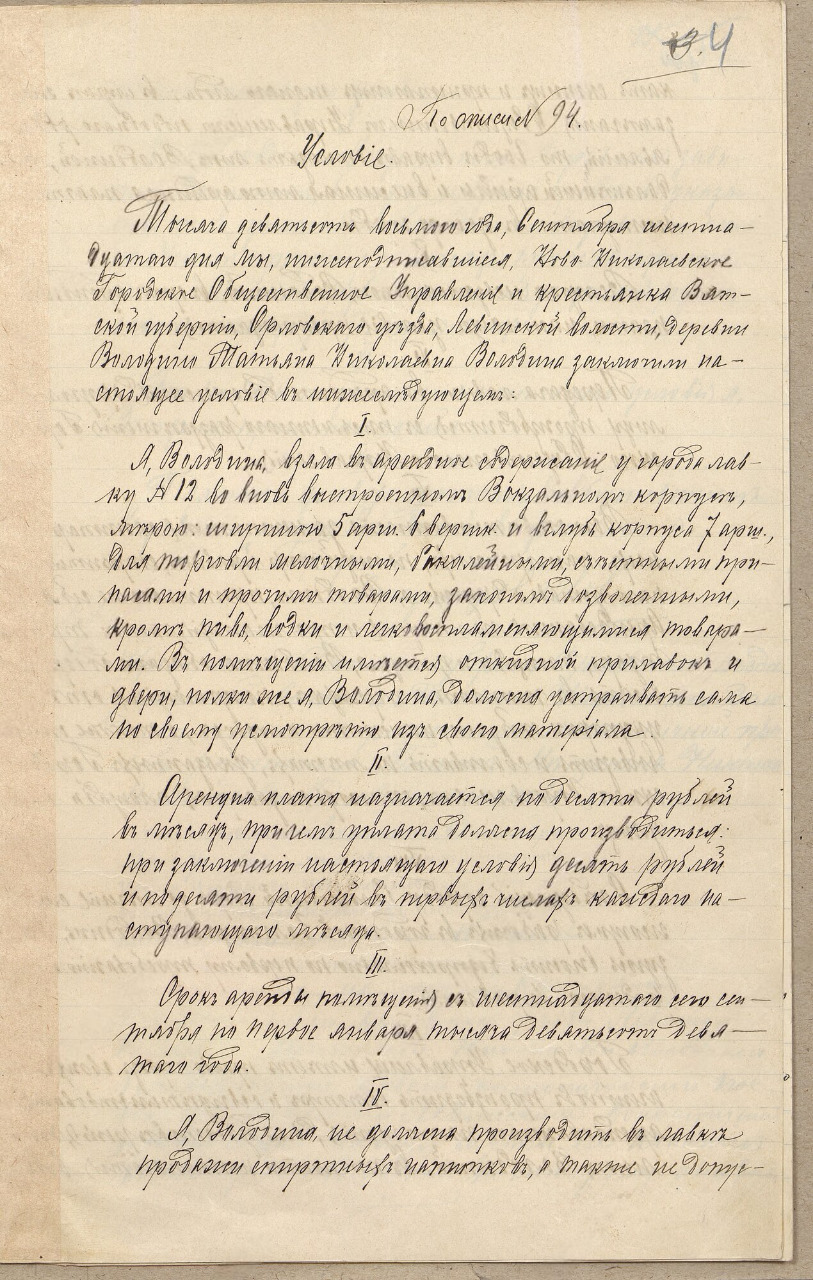 3. 4
По описи № 94.
Условіе.
Тысяча девятьсотъ восьмого года, Сентября шестна-
дцатаго дня мы, нижеподписавшіеся, Ново Николаевское
Городское Общественное Управленіе и крестьянка Вят-
ской губерніи, Орловскаго уѣзда, Левинской волости, деревни
Володино Татьяна Николаевна Володина заключили на-
стоящее условіе въ нижеслѣдующемъ:
I.
Я, Володина, взяла въ арендное содержаніе у города лав-
ку № 12 во вновь выстроенномъ Вокзальномъ корпусѣ,
мѣрою: шириною 5 арш. 6 вершк. и вглубь корпуса 7 арш.,
для торговли мелочными, бакалейными, съѣстными при-
пасами и прочими товарами, закономъ дозволенными,
кромѣ пива, водки и легковоспламеняющимися товара-
ми. Въ помѣщеніи имѣется откидной прилавокъ и
двери, полки же я, Володина, должна устраивать сама
по своему усмотрѣнію изъ своего матеріала.
II.
Арендна плата назначается по десяти рублей
въ мѣсяцъ, при чемъ уплата должна производиться:
при заключеніи настоящаго условія десять рублей
и по десяти рублей въ первыхъ числахъ каждаго на-
ступающаго мѣсяца.
III.
Срокъ аренды помѣщенія съ шестнадцатаго сего сен-
тября по первое января тысяча девятьсотъ девя-
таго года.
IV.
Я, Володина, не должна производить въ лавкѣ
продажи спиртныхъ напитковъ, а также не допус-